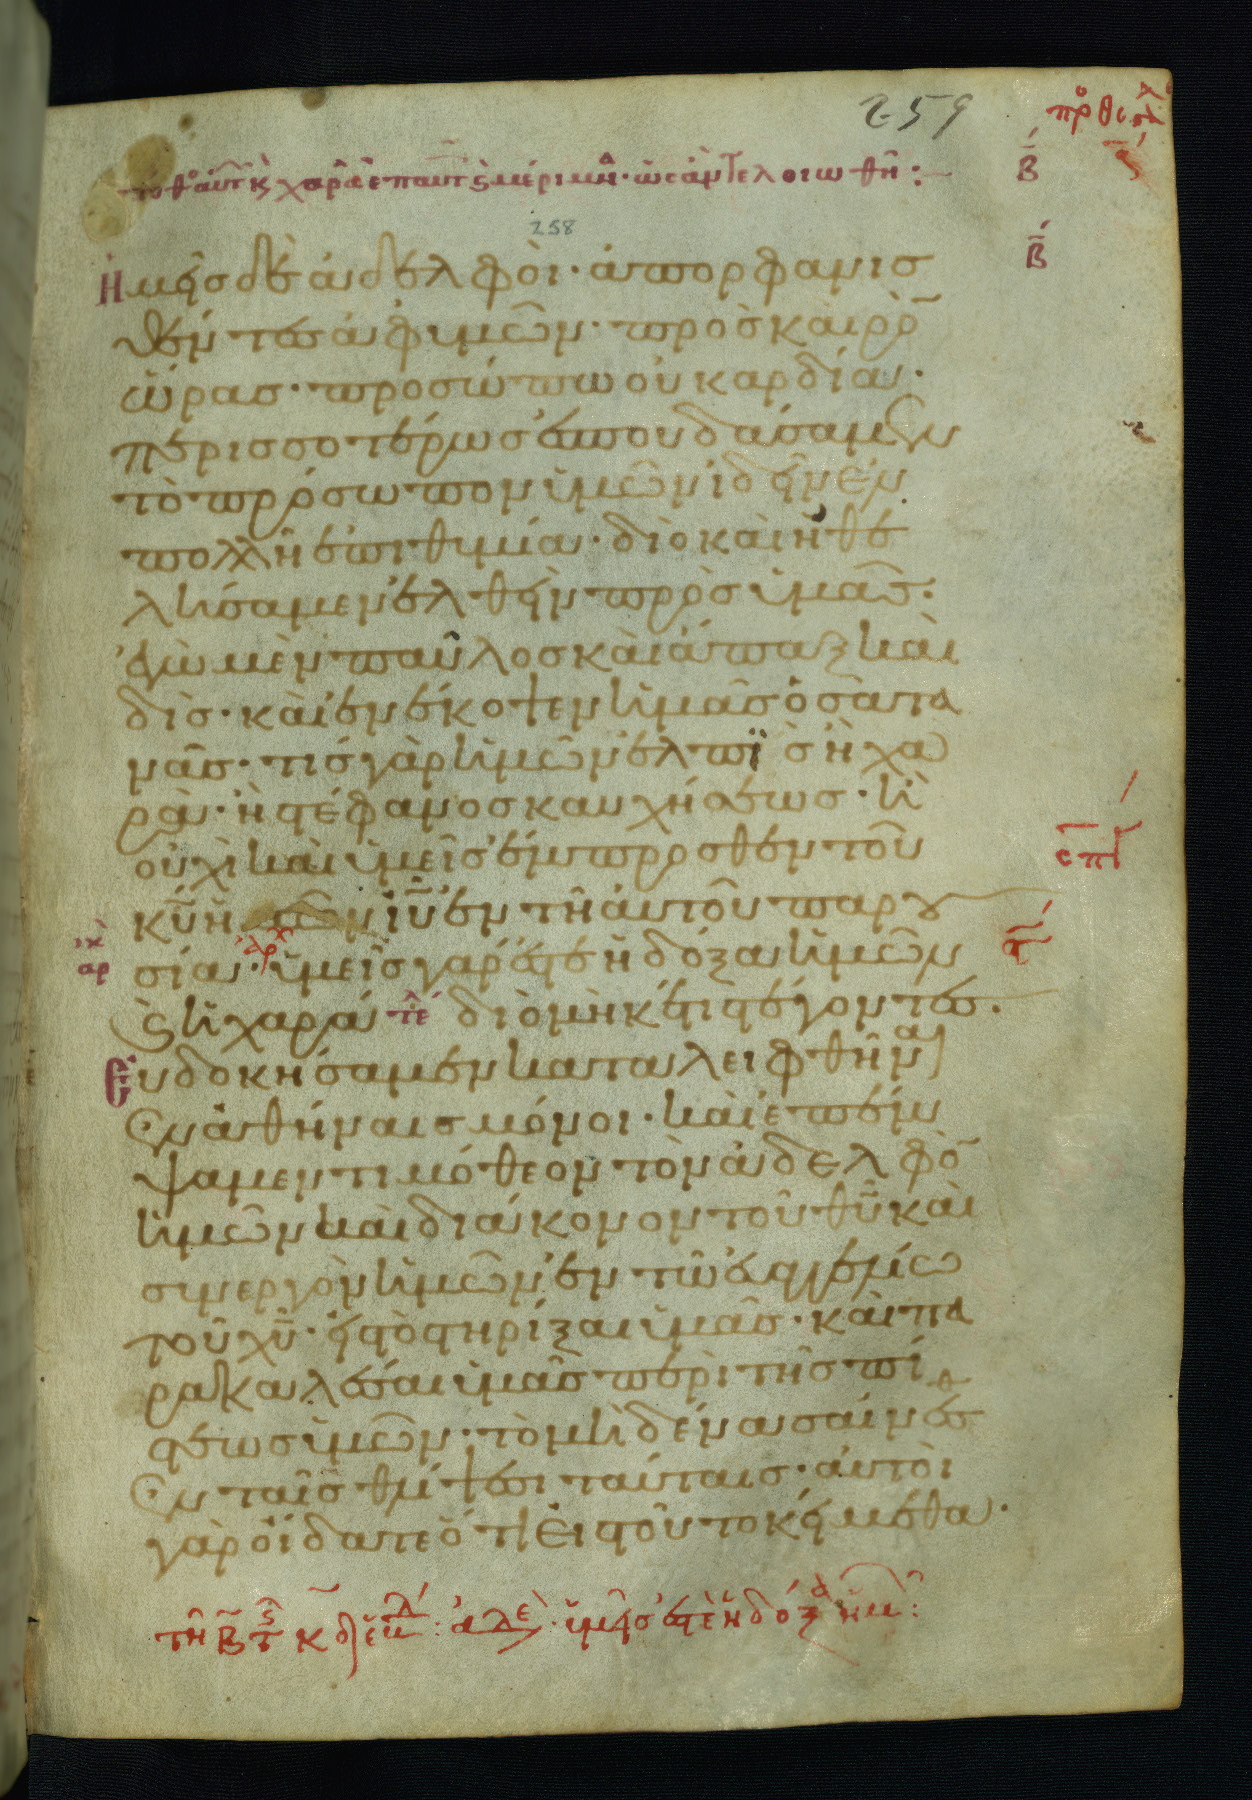 259
Β
258
Β
Ἡμεῖσ δὲ ἀδελφοὶ· ἀπορφανισ
θέντεσ ἀφ ὑμῶν· πρὸσ καιρὸ
ὥρασ· προσώπω οὐ καρδία·
περισσοτέρωσ ἐσπουδάσαμεν
τὸ πρόσωπον ὑμῶν ἰδεῖν ἐν
πολλῆ ἐπιθυμία· διὸ καὶ ἠθε
λήσαμεν ἐλθεῖν πρὸσ ὑμᾶσ·
ἐγὼ μὲν παῦλοσ καὶ ἅπαξ καὶ
δὶσ· καὶ ἐνέκοψεν ἡμᾶσ ὁ σατα
νᾶσ· τίσ γὰρ ἡμῶν ἐλπϊσ ἢ χα
ρὰ· ἢ στέφανοσ καυχήσεωσ· ἢ
οὐχὶ καὶ ὑμεῖσ ἔμπροσθεν τοῦ
κῦ ἡμῶν ἰῦ ἐν τῆ αὐτοῦ παρου
σία· ὑμεῖσ γάρ ἐστε ἡ δόξα ἡμῶν
ϗ ἡ χαρά τε διὸ μηκέτι στέγοντεσ·
Εὐδοκήσαμεν καταλειφθῆναι
ἐν ἀθήναισ μόνοι· καὶ ἐπέμ
ψαμεν τιμόθεον τὸν ἀδελφὸ
ἡμῶν καὶ διάκονον τοῦ θῦ καὶ
συνεργὸν ἡμῶν ἐν τῶ εὐαγγελίω
τοῦ χῦ· εἰσ τὸ στηρίξαι ὑμᾶσ· καὶ πα
ρακαλέσαι ὑμᾶσ περὶ τῆσ πί
στεωσ ὑμῶν· τὸ μηδένα σαίνεσθ
ἐν ταῖσ θλίψεσι ταύταισ· αὐτοὶ
γὰρ οἴδατε ὅτι εἰσ τοῦτο κείμεθα·